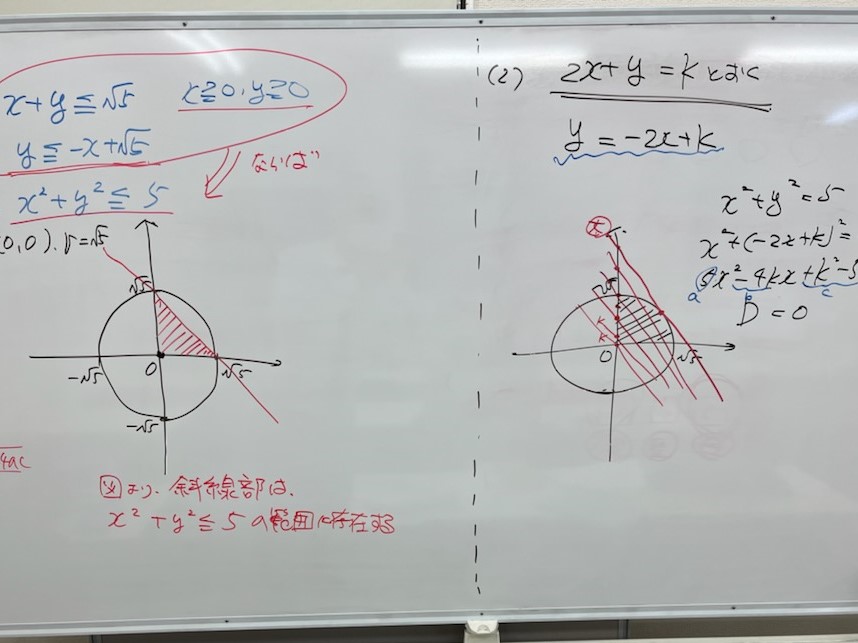 x+y≦√5 x≧0, y≧0
y≦-x+√5
ならば
x²+y²≦5
(0,0), r=√5
√5
-√5
0
√5
-√5
4ac
図より、斜線部は、
x²+y²≦5の範囲に存在する
(2) 2x+y=kとおく
y=-2x+k
x²+y²=5
x²+(-2x+k)²=
5x²-4kx+k²-5
a b c
D=0
k
√5
k
k
0
√5